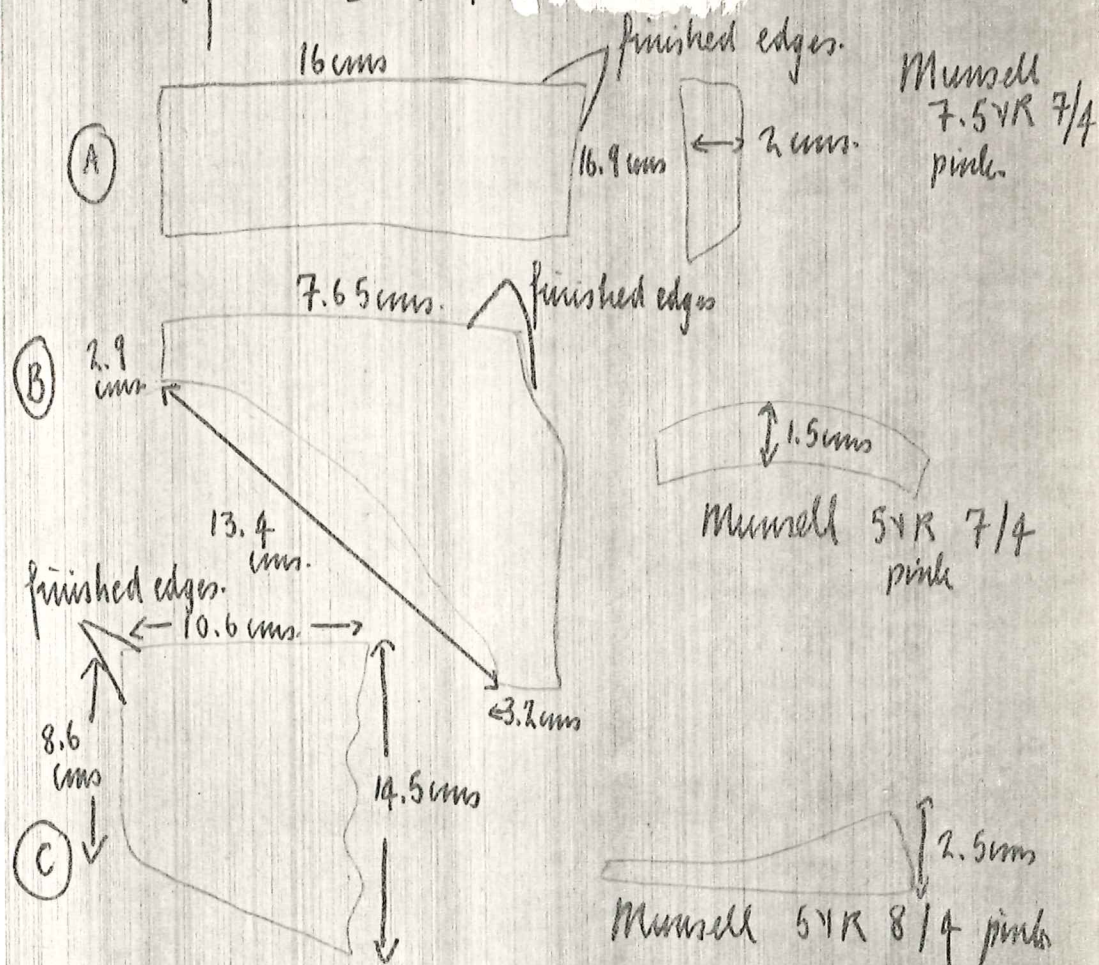 16cms
finished edges.
Munsell
7.5YR 7/4
pink.
A
16.9cms
2cms.
7.65cms.
finished edges
B
2.9
cms
1.5cms
Munsell 5YR 7/4
pink
13.4
cms.
finished edges.
10.6cms.
3.2cms
8.6
cms
14.5cms
C
2.5cms
Munsell 5YR 8/4 pink